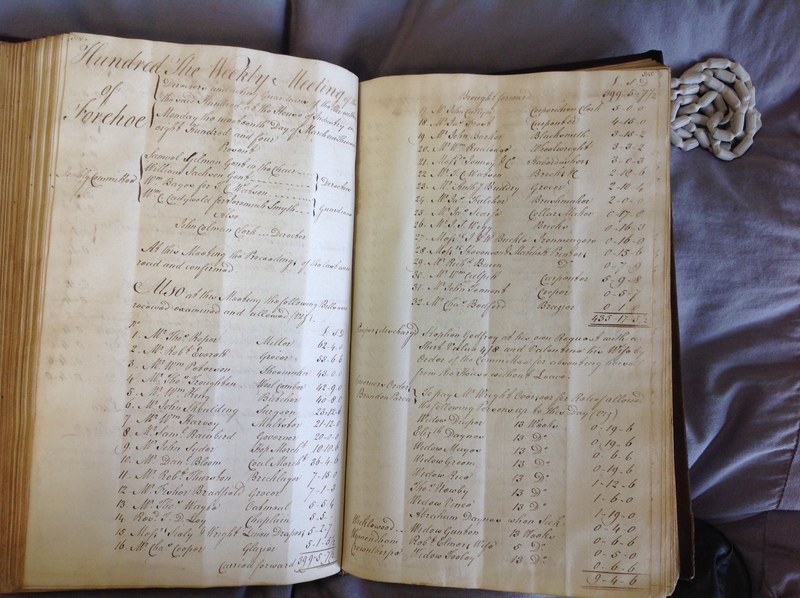 Hundred
of
Forehoe
The Weekly Meeting of the
Directors and acting Guardians of the Poor within
the said Hundred at the House of Industry on
Monday the nineteenth Day of March One Thousand
eight Hundred and four
Present
Weekly Committee
Samuel Spilman Gent in the Chair
William Jackson Gent
Directors
Wm Bayes for J. Watson
Wm Cudgwold for Jeremiah Smyth
Guardians
Also
John Colman Clerk Director
At this Meeting the Proceedings of the last were
read and confirmed
Also at this Meeting the following Bills were
received examined and allowed (viz)
No £ s d
1 Mr Thos Roper Miller 62-4-0
2 Mr Robt Everett Grocer 55-6-6
3 Mr Wm Paterson Shoemaker 43-0-0
4 Mr Thos Troughton Wool Comber 42-9-0
5 Mr Wm King Butcher 40-8-0
6 Mr John Skoulding Surgeon 23-12-6
7 Mr Wm Harvey Maltster 21-12-0
8 Mr Saml Rainbird Governor 20-0-0
9 Mr John Syder Hop Mercht 10-10-6
10 Mr Danl Bloom Coal Mercht 36-4-6
11 Mr Robt Thurston Bricklayer 7-15-0
12 Mr Fisher Bradfield Grocer 7-1-3
13 Mr Thos Wright Oatmeal 5-5-4
14 Revd D Loy Chaplain 5-5-
15 Messrs Sealy & Wright Linen Drapers 5-2-7
16 Mr Chas Cooper Glazier 5-1-5½
Carried forward 399-5-7½
£ s d
Brought forward 399-5-7½
17 Mr John Cullyer Corporation Clock 5-0-0
18 Mr Jas Brost Carpenter 4-15-0
19 Mr John Barker Blacksmith 3-15-2
20 Mr Wm Raillonge Wheelwright 3-3-2
21 Messrs Toway & C Haberdasher 3-0-3
22 Mr T. C. Watson Breeches 2-19-6
23 Mr Anthy Buildry Grocer 2-10-4
24 Mr Jas Fulcher Brushmaker 2-0-0
25 Mr Jas Scarfe Collar Maker 0-17-0
26 Mr J. J. Wigg Bricks 0-16-3
27 Messrs J & W Buckle Ironmongers 0-16-0
28 Messrs Stevenson & Matchett Printers 0-15-6
29 Mr Richd Bacon Do 0-7-9
30 Mr Wm Culpitt Carpenter 5-9-8
31 Mr John Tennent Cooper 0-5-7
32 Mr Chas Bonsford Brazier 0-1-2
435-17-5½
Paupers discharged
Stephen Godfrey at his own Request with a
Shirt Value 4/8 and Valentine his Wife by
Order of the Committee for absenting herself
from the House without Leave
Governors Orders
Brandon Parva
To pay Mr Wright Overseer for Relief allowed
the following Persons up to this Day (viz)
Widow Draper 13 Weeks 0-19-6
Elizth Daynes 13 Do 0-19-6
Widow Mayes 13 Do 0-6-6
Widow Groom 13 Do 0-19-6
Widow Rice 13 Do 1-12-6
Thos Newby 13 Do 1-6-0
Widow Pinco 13 Do 1-19-0
Abraham Daynes when Sick 0-4-0
Wicklewood Widow Gunton 13 Weeks 0-6-6
Wymondham Robt Elmer & Wife 5 Do 0-5-0
Crownthorpe Widow Tooley 13 Do 0-6-6
9-4-6